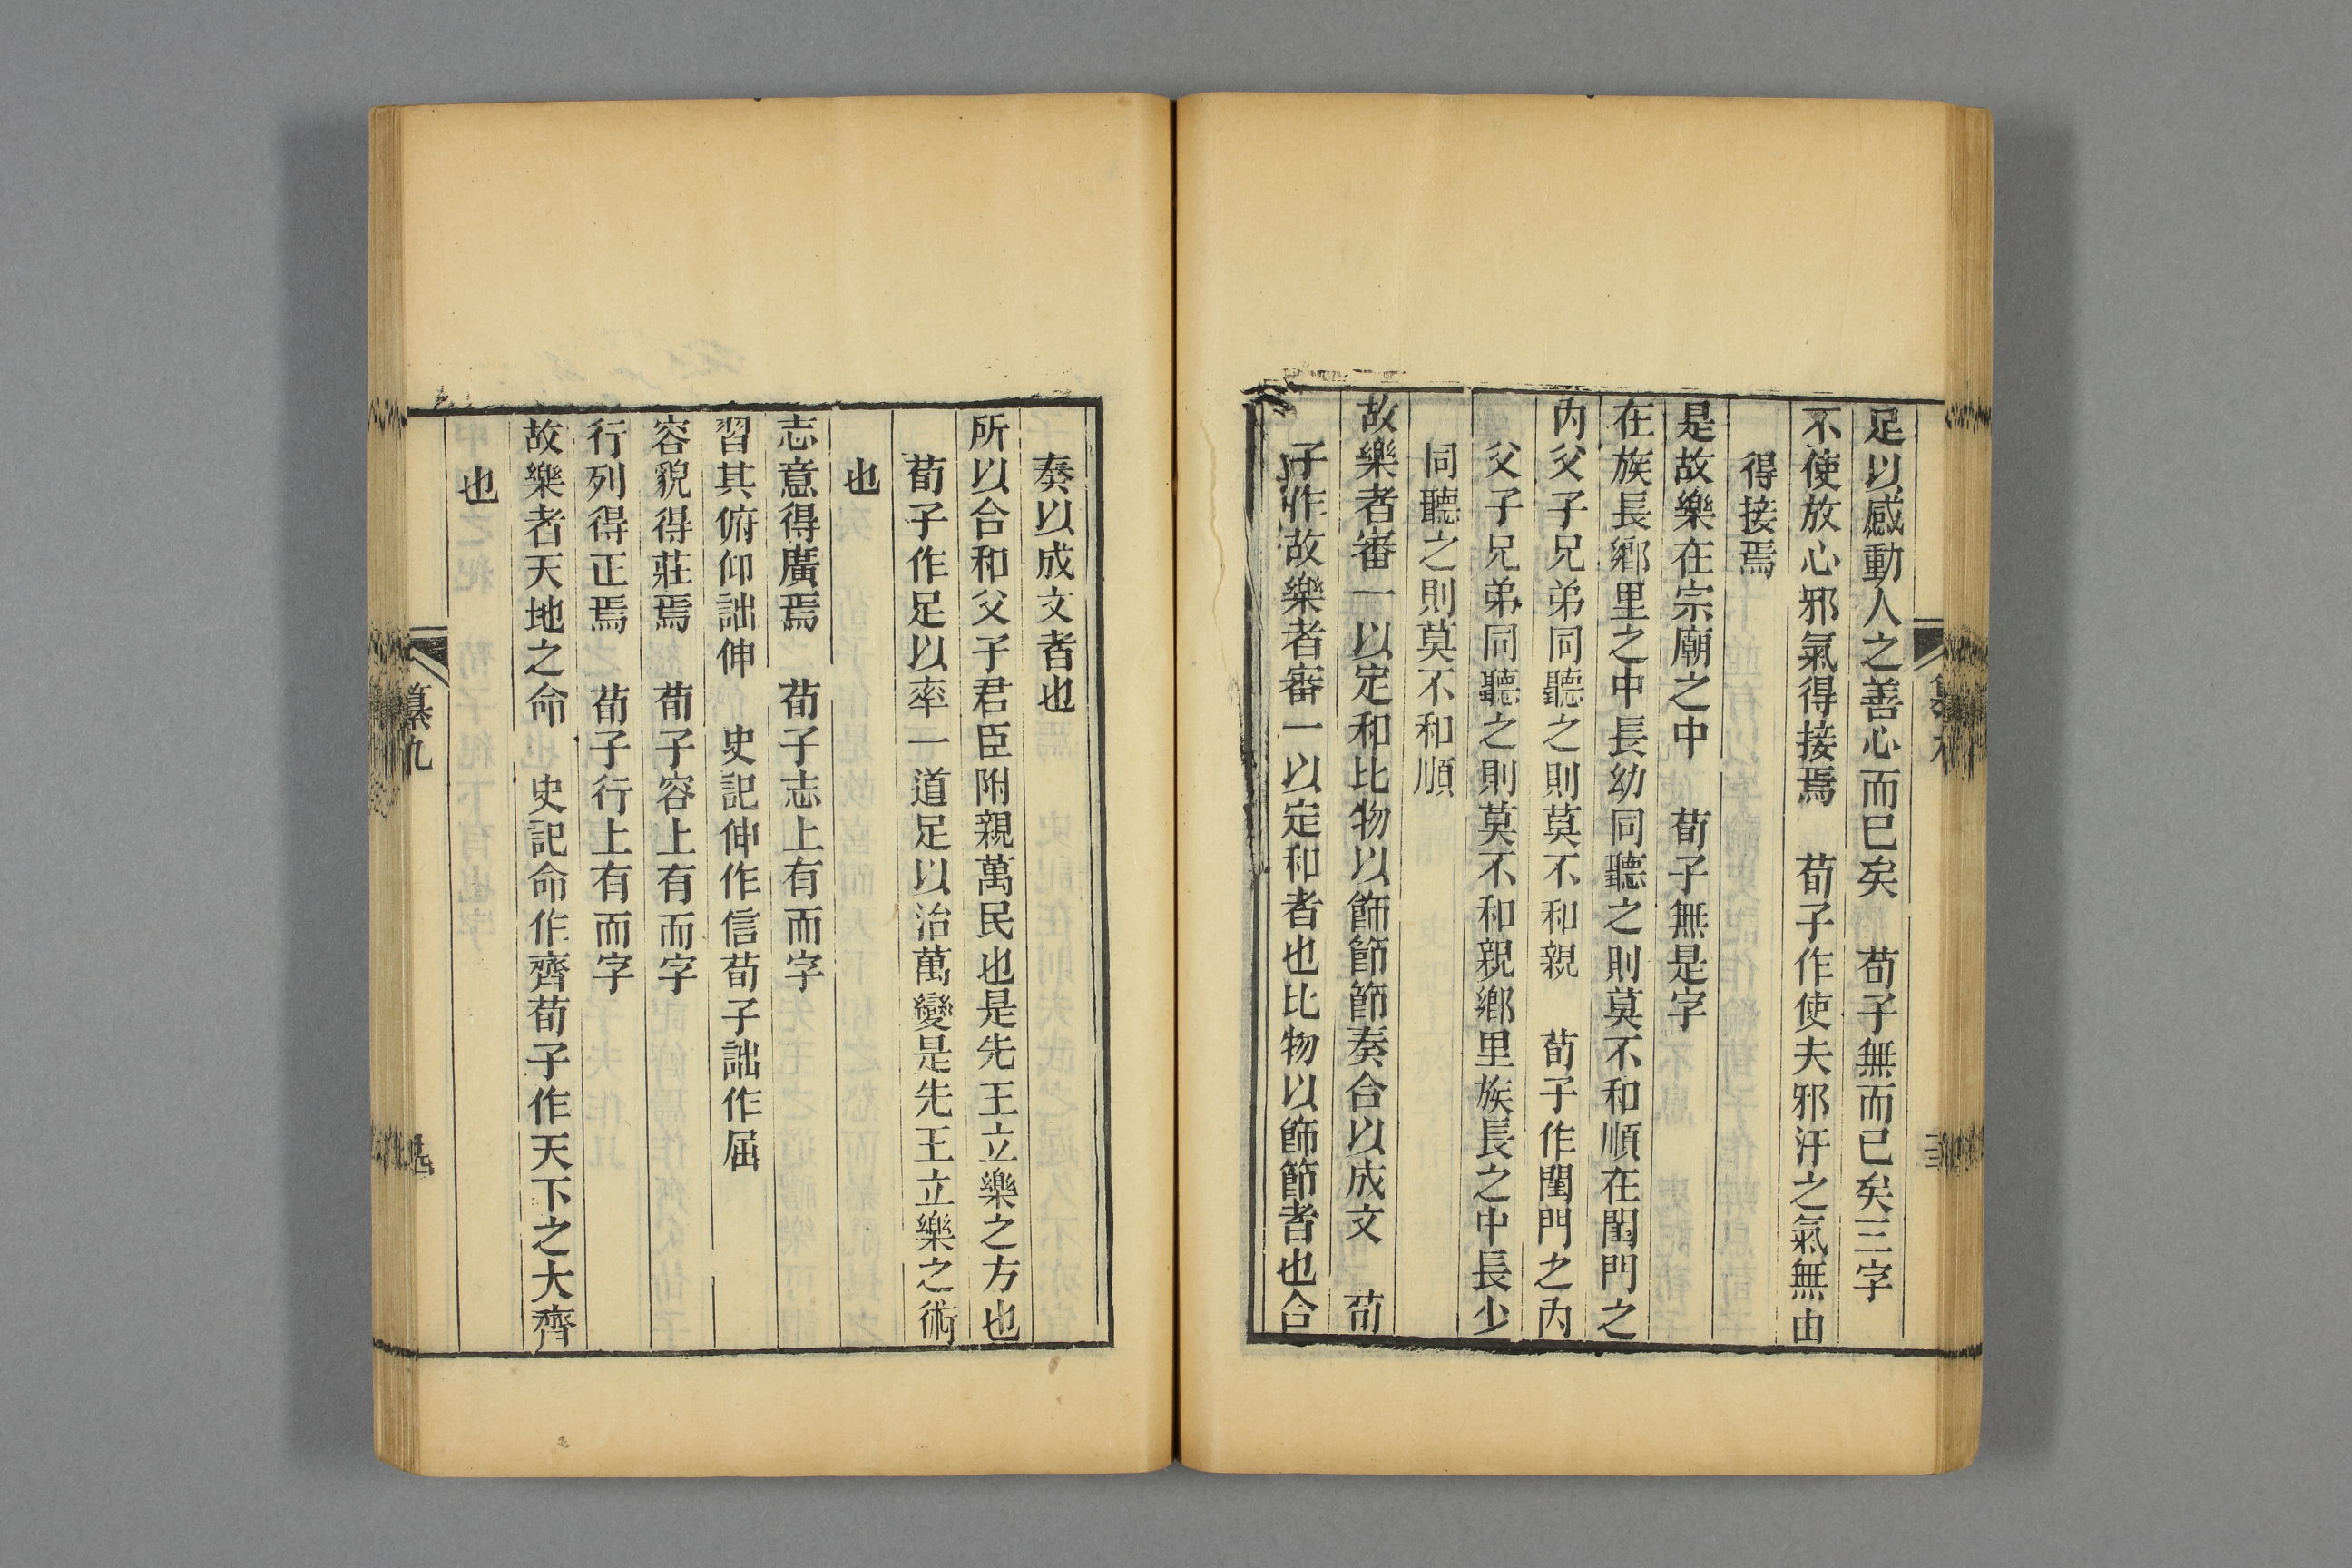 足以感動人之善心而巳矣　荀子無而已矣三字
不使放心邪氣得接焉　荀子作使夫邪汙之氣無由
得接焉
是故樂在宗廟之中　荀子無是字
在族長鄉里之中長幼同聽之則莫不和順在閨門之
內父子兄弟同聽之則莫不和親　荀子作閨門之內
父子兄弟同聽之則莫不和親鄉里族長之中長少
同聽之則莫不和順
故樂者審一以定和比物以飾節節奏合以成文　荀
子作故樂者審一以定和者也比物以飾節者也合
奏以成文者也
所以合和父子君臣附親萬民也是先王立樂之方也
荀子作足以率一道足以治萬變是先王立樂之術
也
志意得廣焉　荀子志上有而字
習其俯仰詘伸　史記伸作信荀子詘作屈
容貌得莊焉　荀子容上有而字
行列得正焉　荀子行上有而字
故樂者天地之命　史記命作齊荀子作天下之大齊
也
纂九